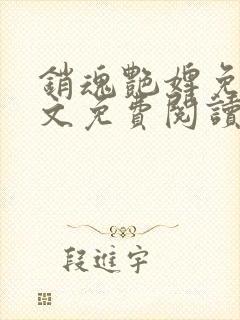 銷魂艷婢免
文免費閱讀
段進宇